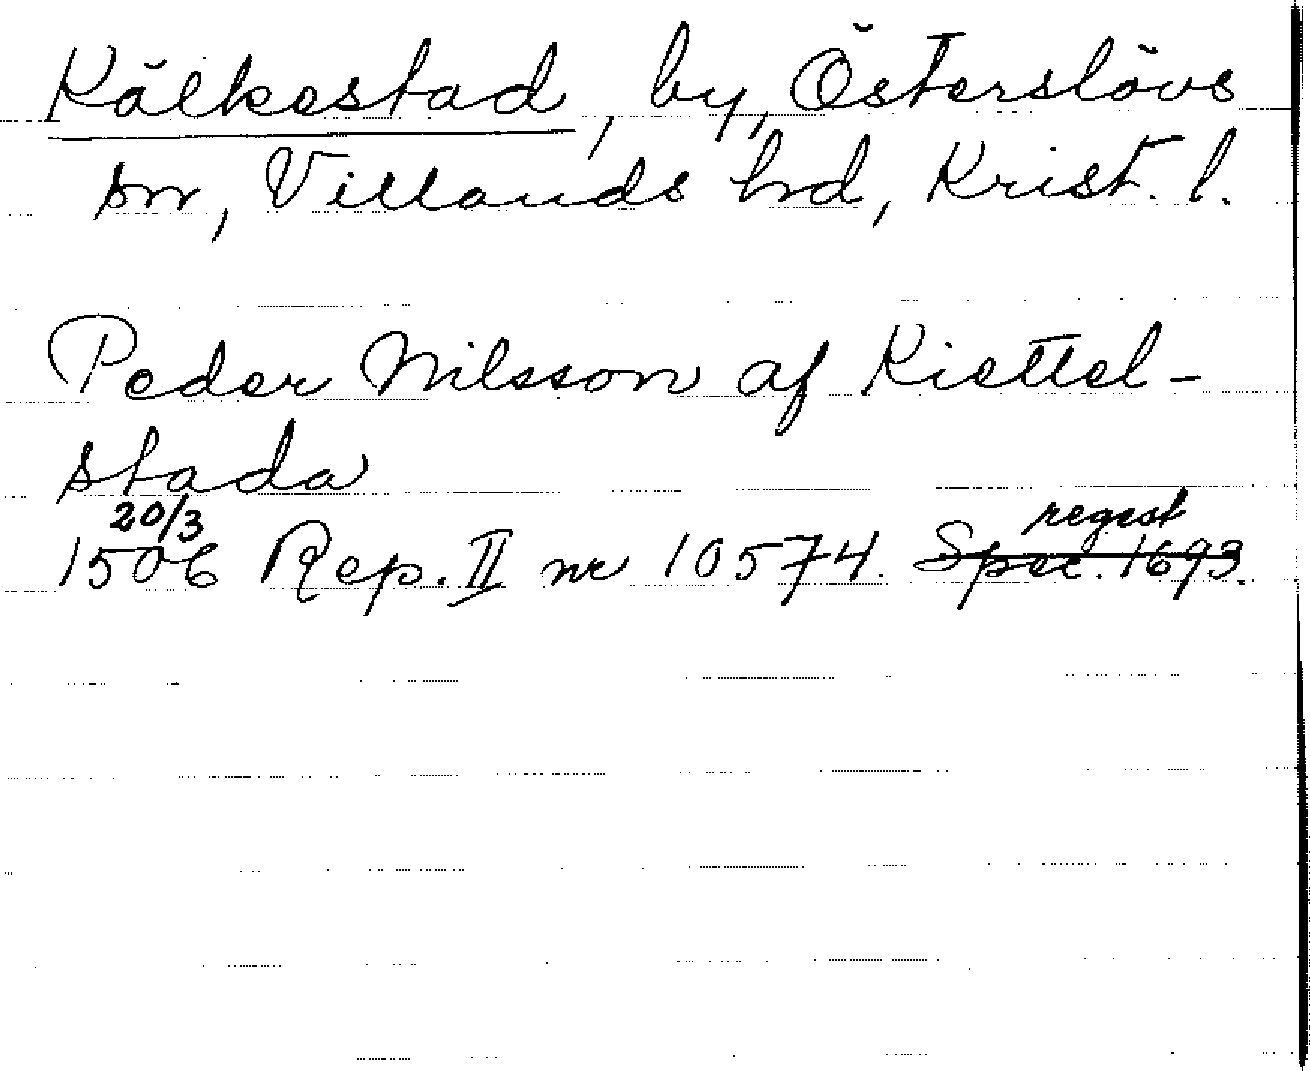 Kälkestad, by, Österslövs
sn, Villands hd, Krist. l.
Peder Nilsson af Kiettel-
stada
20/3 regest
1506 Rep. II nr 10574. Spec. 1693.